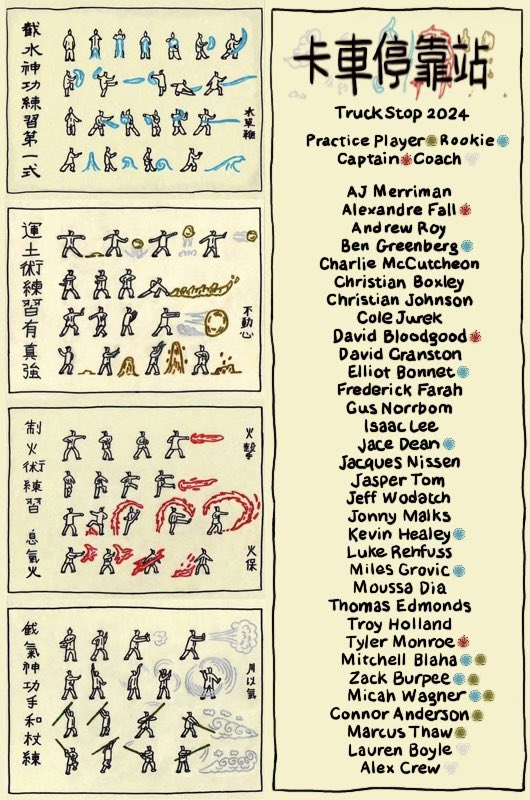 截水神功練習第一式
水草鞭
運土術練習有真強
不動心
制火術練習 息氣火
火擊
火保
截氣神功手和杖練
月以氣
卡車停靠站
Truck Stop 2024
Practice Player Rookie
Captain Coach
AJ Merriman
Alexandre Fall
Andrew Roy
Ben Greenberg
Charlie McCutcheon
Christian Boxley
Christian Johnson
Cole Jurek
David Bloodgood
David Cranston
Elliot Bonnet
Frederick Farah
Gus Norrbom
Isaac Lee
Jace Dean
Jacques Nissen
Jasper Tom
Jeff Wodatch
Jonny Malks
Kevin Healey
Luke Rehfuss
Miles Grovic
Moussa Dia
Thomas Edmonds
Troy Holland
Tyler Monroe
Mitchell Blaha
Zack Burpee
Micah Wagner
Connor Anderson
Marcus Thaw
Lauren Boyle
Alex Crew